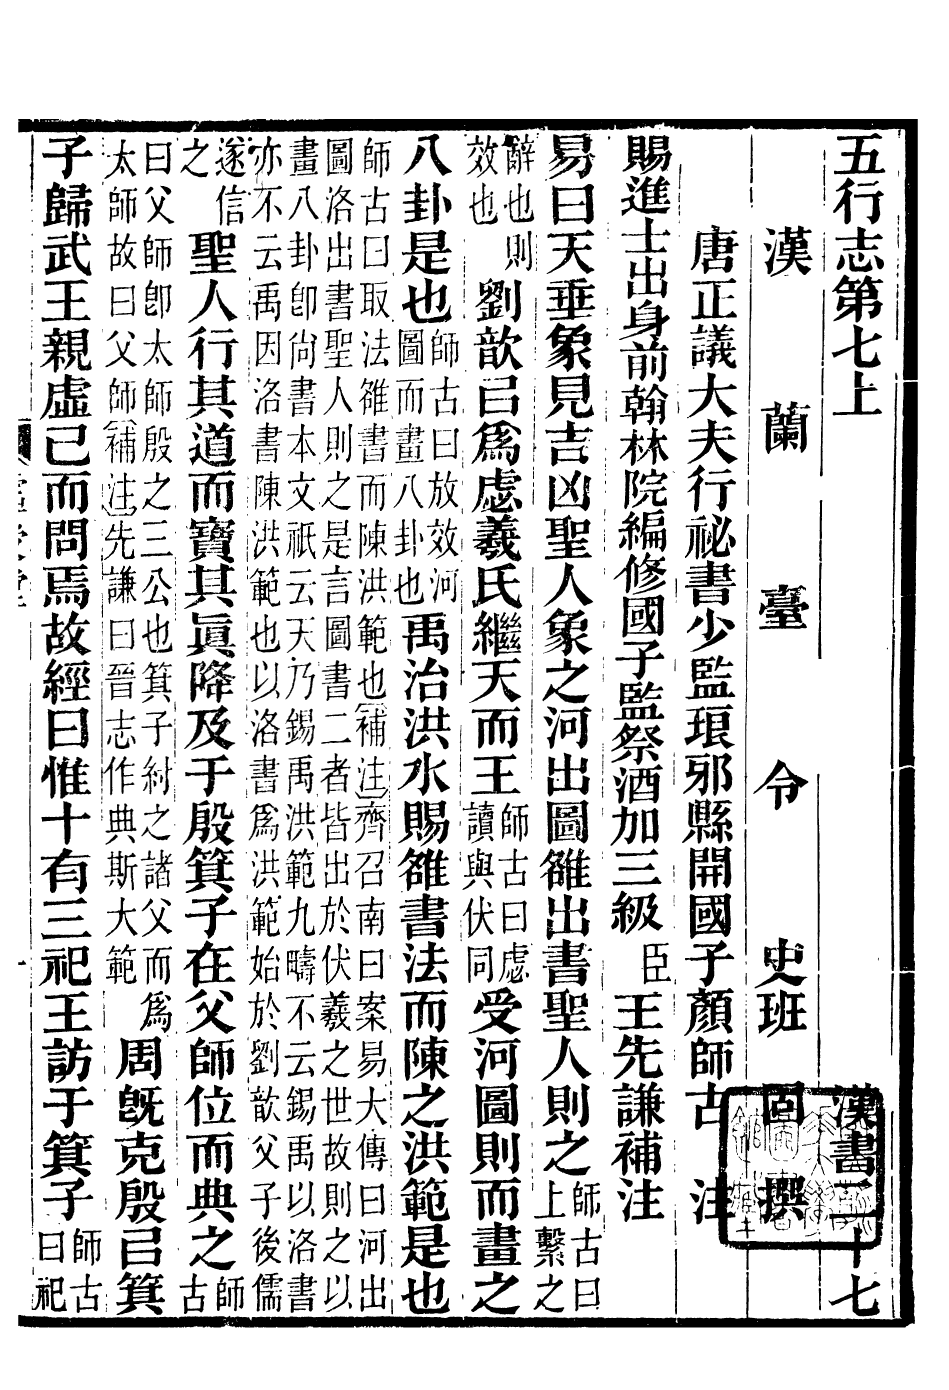 五行志第七上 漢書二十七
漢蘭臺令史班固撰
唐正議大夫行祕書少監琅邪縣開國子顏師古注
賜進士出身前翰林院編修國子監祭酒加三級臣王先謙補注
易曰天垂象見吉凶聖人象之河出圖雒出書聖人則之師古曰上繫之
辭也則效也劉歆㠯爲虙羲氏繼天而王師古曰虙讀與伏同受河圖則而畫之
八卦是也師古曰放效河圖而畫八卦也禹治洪水賜雒書法而陳之洪範是也
師古曰取法雒書而陳洪範也補注齊召南曰案易大傳曰河出
圖洛出書聖人則之是言圖書二者皆出於伏羲之世故則之以
畫八卦卽尚書本文祇云天乃錫禹洪範九疇不云錫禹以洛書
亦不云禹因洛書陳洪範也以洛書爲洪範始於劉歆父子後儒
遂信之聖人行其道而寶其眞降及于殷箕子在父師位而典之師古
曰父師卽太師殷之三公也箕子紂之諸父而爲
太師故曰父師補注先謙曰晉志作典斯大範周旣克殷㠯箕
子歸武王親虛己而問焉故經曰惟十有三祀王訪于箕子師古曰祀